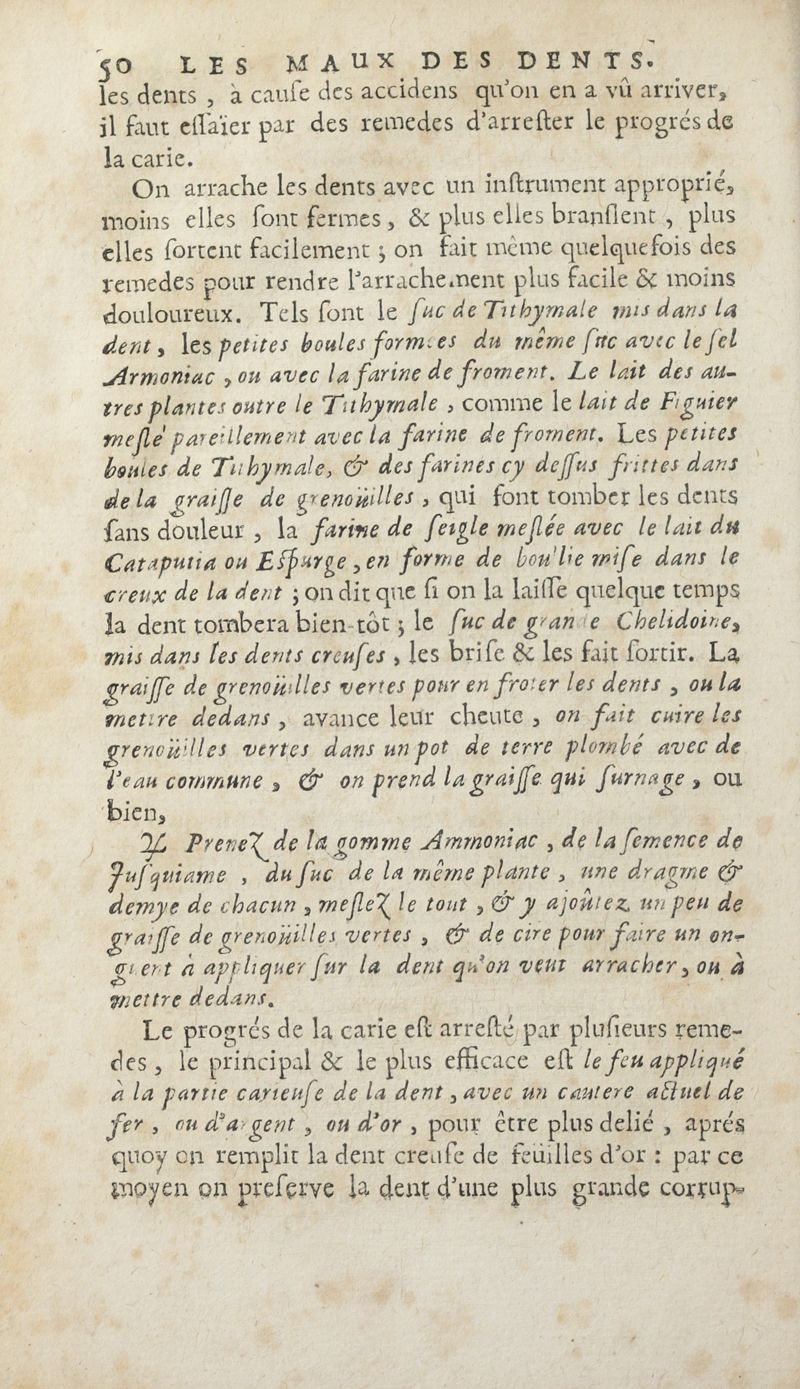 50 LES MAUX DES DENTS.
les dents, à cauſe des accidens qu'on en a vû arriver,
il faut eſſaïer par des remedes d'arreſter le progrés de
la carie.
On arrache les dents avec un inſtrument approprié,
moins elles ſont fermes, & plus elles branſlent, plus
elles ſortent facilement ; on fait même quelquefois des
remedes pour rendre l'arrachement plus facile & moins
douloureux. Tels ſont le ſuc de Tithymale mis dans la
dent, les petites boules formées du même ſuc avec le ſel
Armoniac, ou avec la farine de froment. Le lait des au-
tres plantes outre le Tithymale, comme le lait de Figuier
meſlé pareillement avec la farine de froment. Les petites
boules de Tithymale, & des farines cy deſſus frittes dans
de la graiſſe de grenoüilles, qui font tomber les dents
ſans douleur, la farine de ſeigle meſlée avec le lait du
Cataputia ou Eſpurge, en forme de boullie miſe dans le
creux de la dent ; on dit que ſi on la laiſſe quelque temps
la dent tombera bien-tôt ; le ſuc de grande Chelidoine,
mis dans les dents creuſes, les briſe & les fait ſortir. La
graiſſe de grenoüilles vertes pour en froter les dents, ou la
mettre dedans, avance leur cheute, on fait cuire les
grenoüilles vertes dans un pot de terre plombé avec de
l'eau commune, & on prend la graiſſe qui ſurnage, ou
bien,
♃ Prenez de la gomme Ammoniac, de la ſemence de
Juſquiame, du ſuc de la même plante, une dragme &
demye de chacun, meſlez le tout, & y ajoûtez un peu de
graiſſe de grenoüilles vertes, & de cire pour faire un on-
guent à appliquer ſur la dent qu'on veut arracher, ou à
mettre dedans.
Le progrés de la carie eſt arreſté par pluſieurs reme-
des, le principal & le plus efficace eſt le feu appliqué
à la partie carieuſe de la dent, avec un cautere actuel de
fer, ou d'argent, ou d'or, pour être plus delié, aprés
quoy on remplit la dent creuſe de feüilles d'or : par ce
moyen on preſerve la dent d'une plus grande corrup-